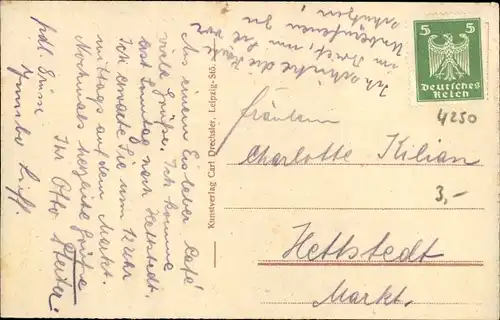 Aus einem Eisleber Café
viele Grüße. Ich komme
erst Sonntag nach Hettstedt.
Ich erwarte Sie um 12 Uhr
mittags auf dem Markt.
Nochmals herzliche Grüße
Ihr Otto
Ich schicke die Karte
im Brief, um Sie vor
Unberufenen zu
schützen!
Kunstverlag Carl Drechsler, Leipzig-Stö.
5 5
Deutsches
Reich
4250
Fräulein
Charlotte Kilian
3,-
Hettstedt
Markt.